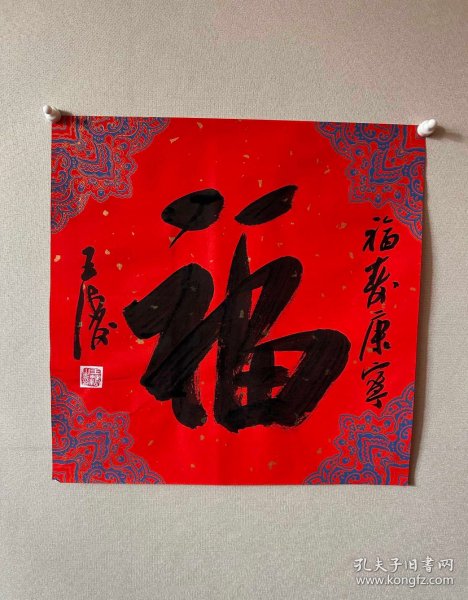 福
福寿康宁
王
孔夫子旧书网
https://www.kongfz.com